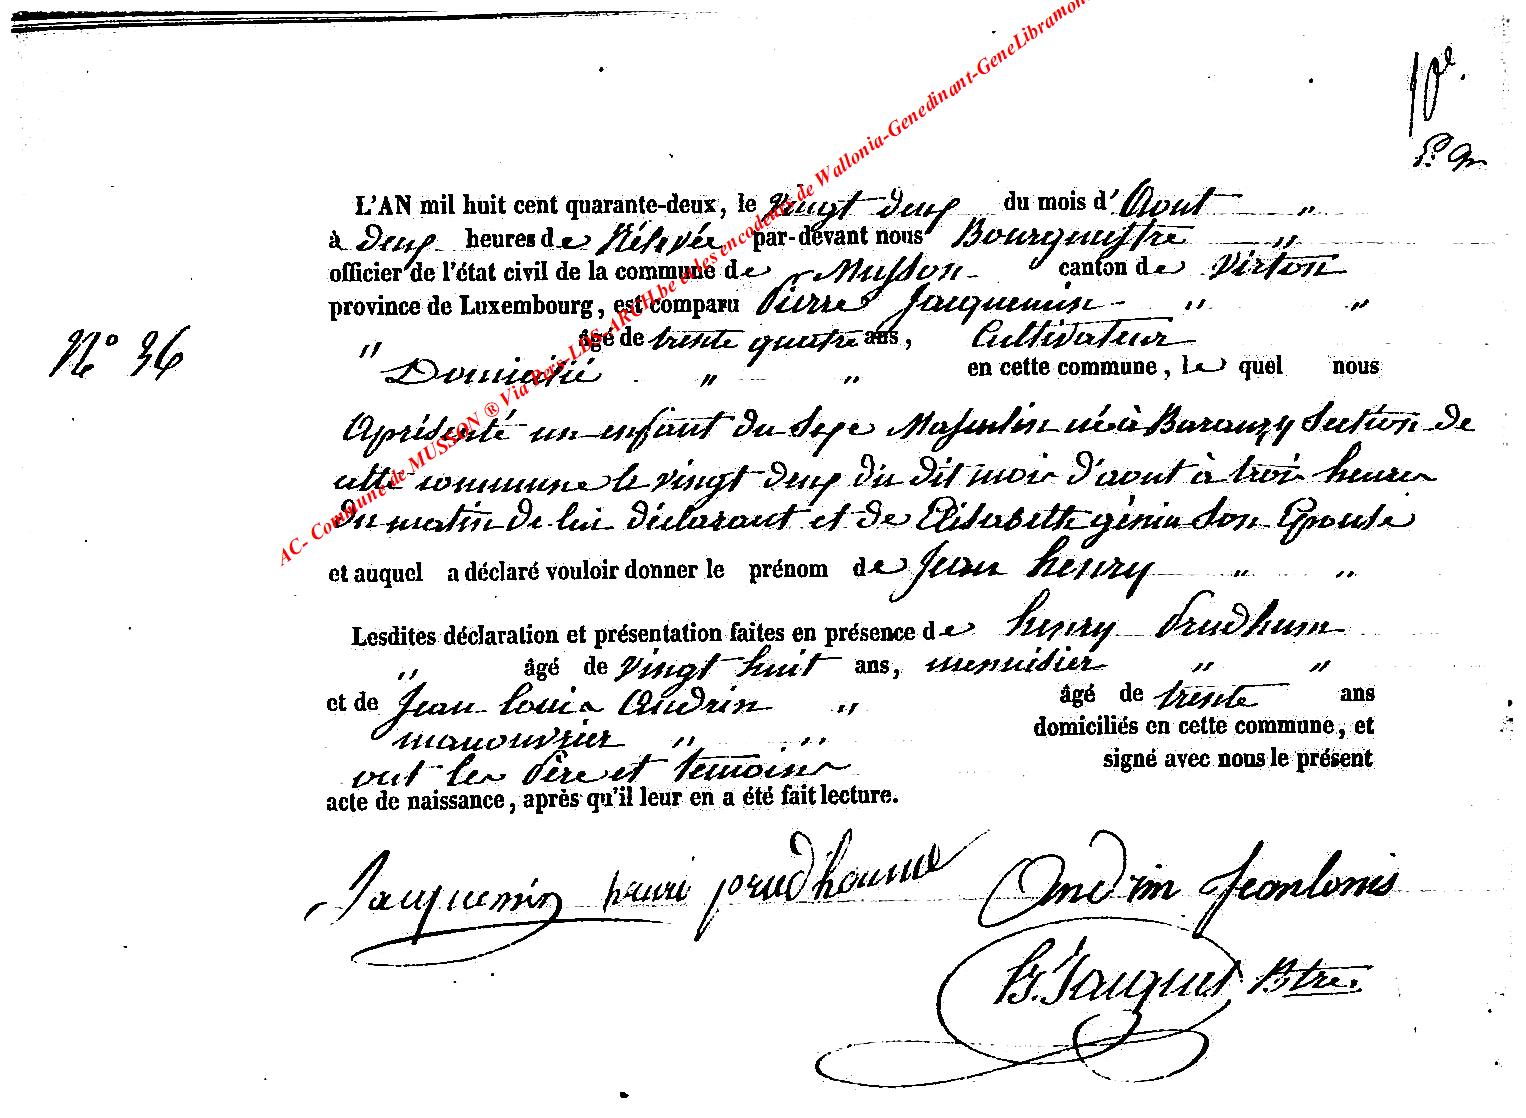 10e.
AC- Commune de MUSSON ® Via Pers-LDS-ARCH.be et les encodeurs de Wallonia-Genedinant-GeneLibramon
L'AN mil huit cent quarante-deux, le vingt deux du mois d'Aout "
à deux heures de Rélevée par-devant nous Bourguestre "
officier de l'état civil de la commune de Musson canton de Virton
province de Luxembourg, est comparu Pierre Jacquemin " "
N° 36
" âgé de trente quatre ans, Cultivateur
Domicilié " " en cette commune, le quel nous
Aprésenté un enfant du Sexe Masculin né à Baranzy Section de
cette commune le vingt deux du dit mois d'aout à trois heures
du matin de lui déclarant et de Elisabette génin Son Epouse
et auquel a déclaré vouloir donner le prénom de Jean henry " "
Lesdites déclaration et présentation faites en présence de henry Prudhum
" âgé de vingt huit ans, menuisier " "
et de Jean Louis Andrin " âgé de trente ans
manouvrier " " domiciliés en cette commune, et
ont les Père et temoins signé avec nous le présent
acte de naissance, après qu'il leur en a été fait lecture.
Jacquemin henri prudhomme Andrin Jeanlouis
Jacquet Btre.